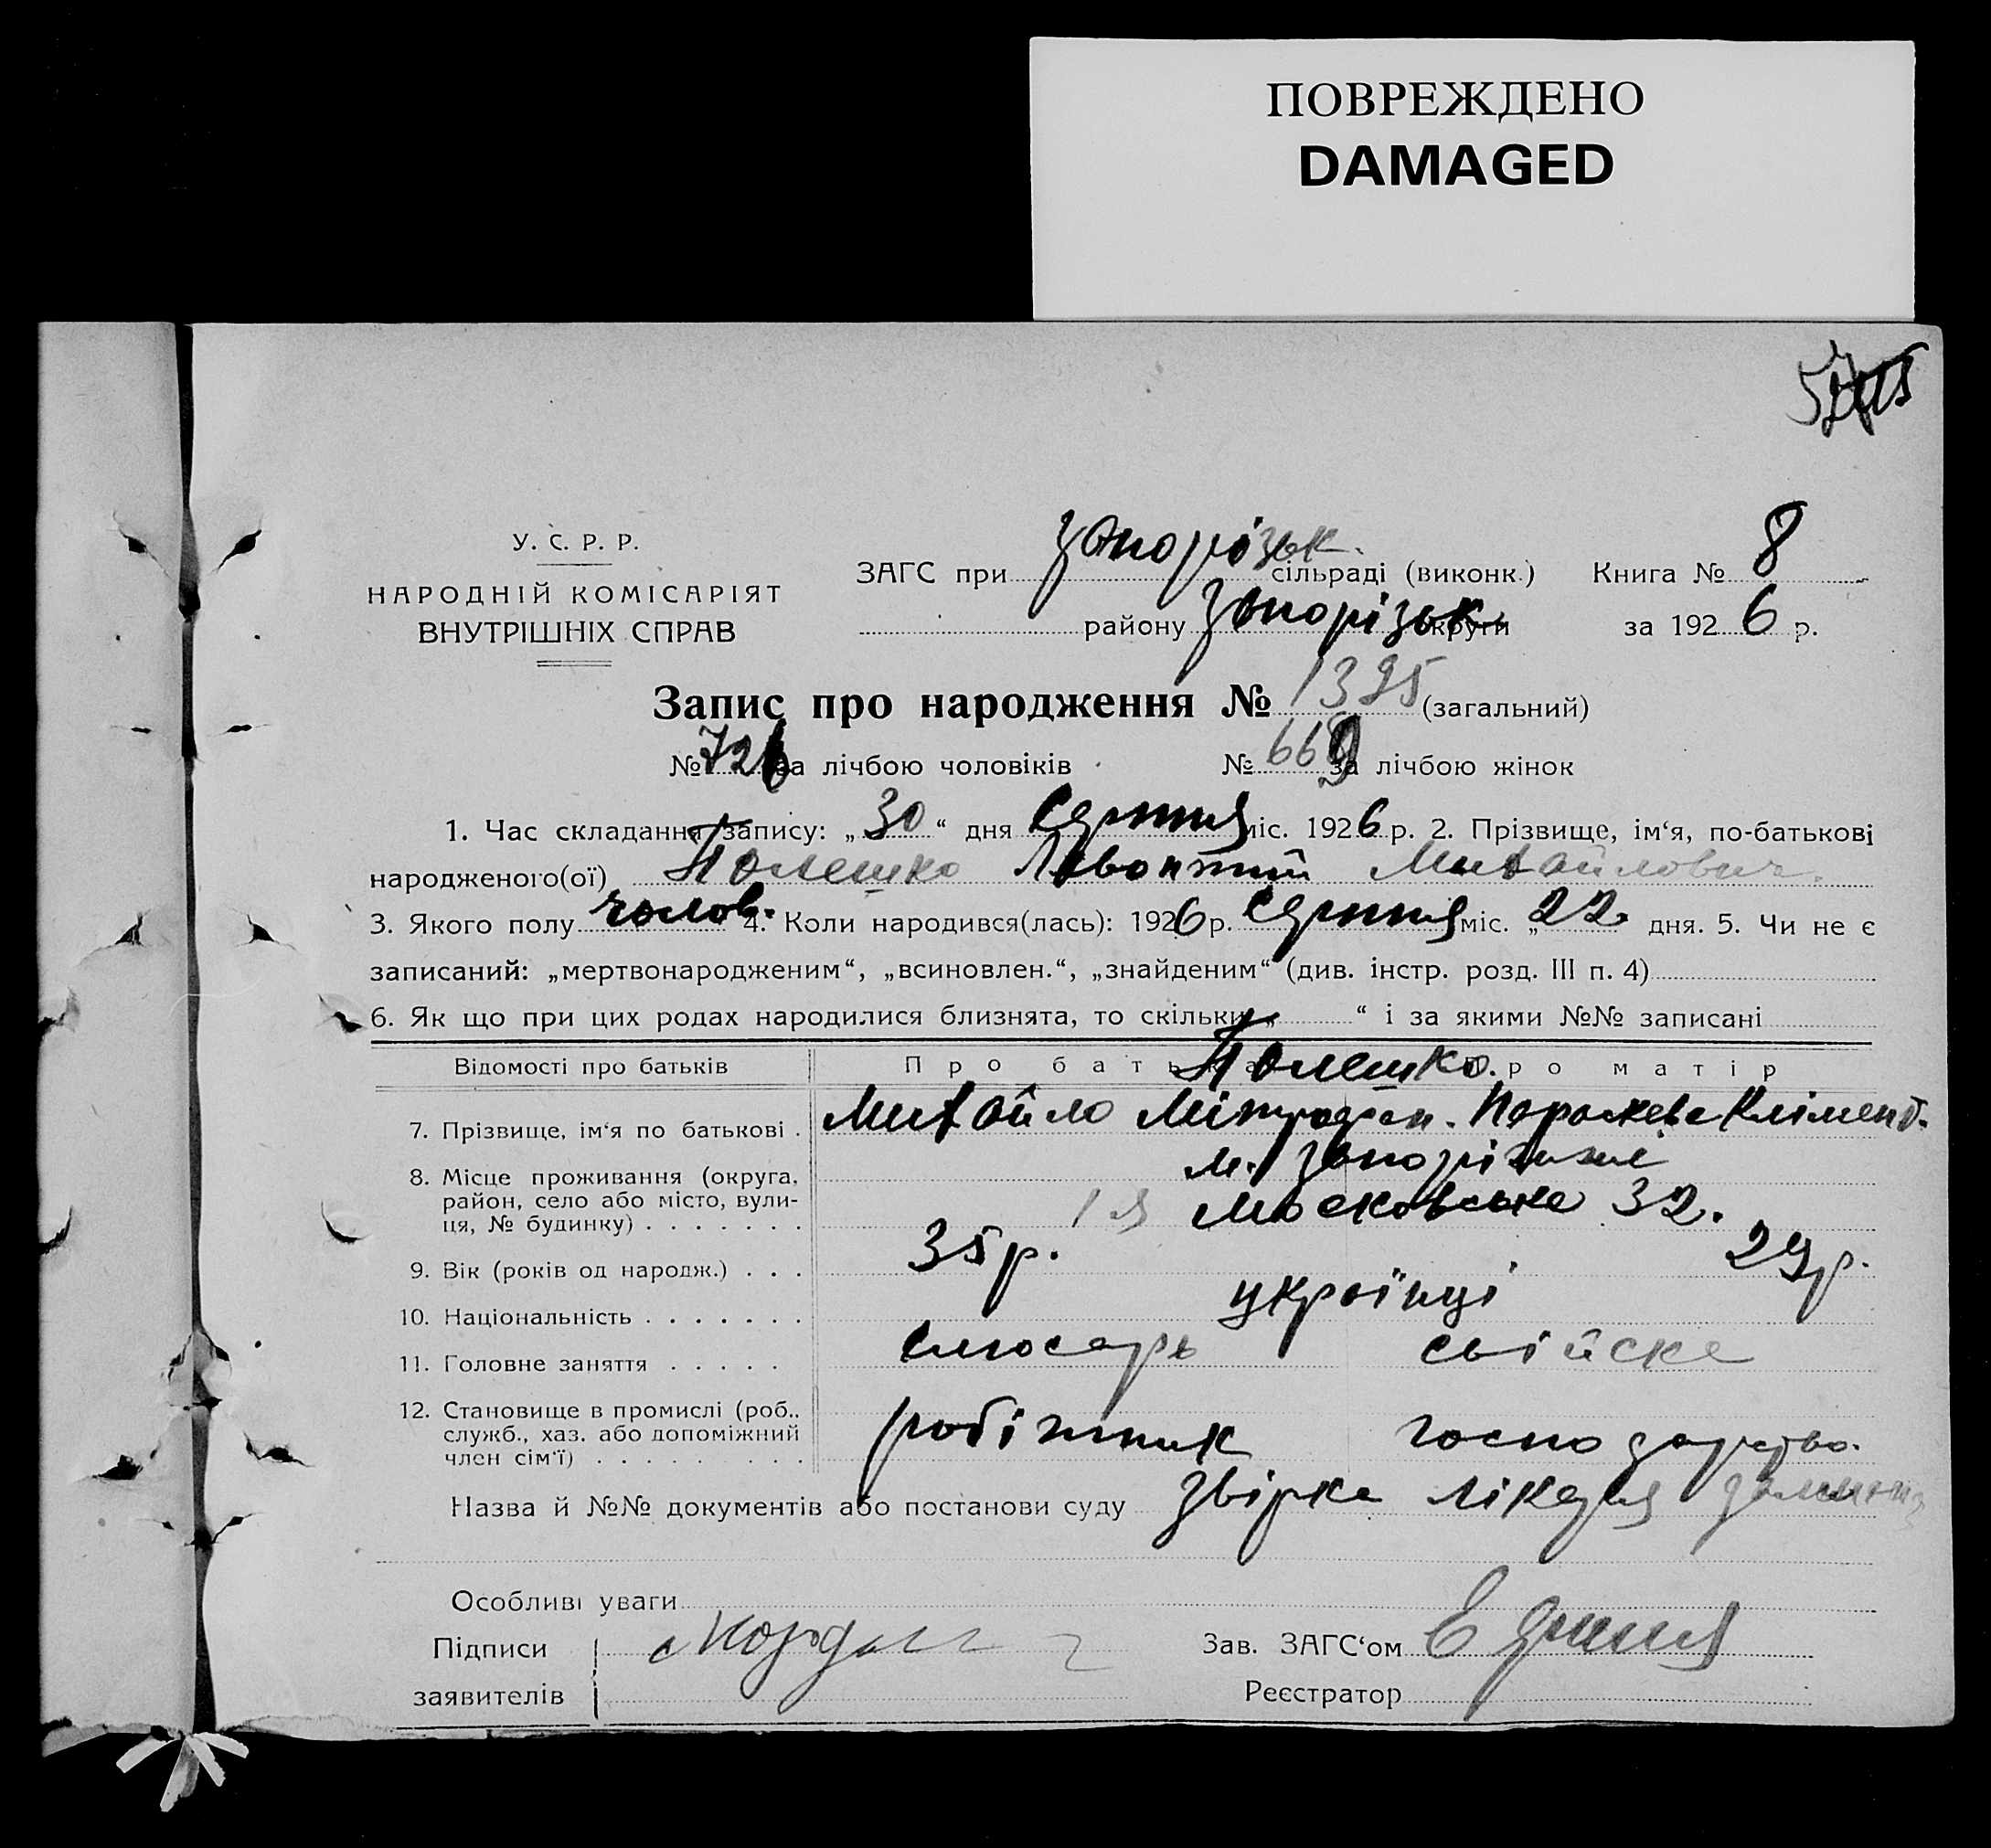 ПОВРЕЖДЕНО
DAMAGED
У. С. Р. Р.
НАРОДНІЙ КОМІСАРІЯТ
ВНУТРІШНІХ СПРАВ
ЗАГС при Запорізьк. сільраді (виконк.) Книга № 8
району Запорізьк. округи за 1926 р.
Запис про народження № 1395 (загальний)
№ 726 за лічбою чоловіків № 669 за лічбою жінок
1. Час складання запису: „30“ дня Серпня міс. 1926 р. 2. Прізвище, ім‘я, по-батькові
народженого(ої) Полешко Левонтий Михайлович.
3. Якого полу чолов. 4. Коли народився(лась): 1926 р. Серпня міс. „22 дня. 5. Чи не є
записаний: „мертвонародженим“, „всиновлен.“, „знайденим“ (див. інстр. розд. III п. 4)
6. Як що при цих родах народилися близнята, то скільки „ “ і за якими №№ записані
Відомості про батьків Про батька Про матір
Полешко.
7. Прізвище, ім‘я по батькові . Михайло Мітрофан. Параскева Клімент.
8. Місце проживання (округа, район, село або місто, вулиця, № будинку) м. Запоріжжє
Московська 32.
9. Вік (років од народж.) . . . 35 р. 29 р.
10. Національність українці
11. Головне заняття слюсарь сьійске
12. Становище в промислі (роб., служб., хаз. або допоміжний член сім‘ї) робітник господарство.
Назва й №№ документів або постанови суду Звірка лікаря
Особливі уваги
Підписи
заявителів
Зав. ЗАГС‘ом
Реєстратор